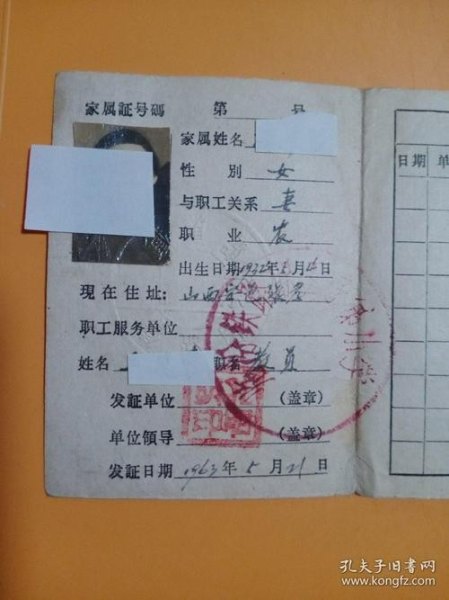 家属証号碼 第 号
家属姓名
性 别 女
与职工关系 妻
职 业 农
出生日期1932年5月 日
现在住址: 山西
职工服务单位
姓名 职名 教员
发証单位 (盖章)
单位領导 (盖章)
发証日期 1963年5月21日
日期 单
孔夫子旧书网
www.kongfz.com